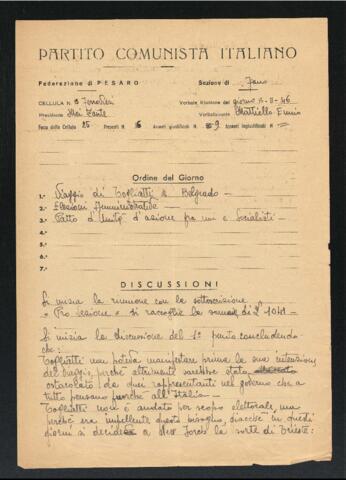 PARTITO COMUNISTA ITALIANO
Federazione di PESARO
Sezione di Fano
CELLULA N. 3
Verbale Riunione del giorno 11-11-46
Presidente Mei Dante
Verbalizzante Mattiello Ennio
Forza della Cellula 25 Presenti N. 16 Assenti giustificati N. 9 Assenti ingiustificati N.
Ordine del Giorno
1.° Viaggio di Togliatti a Belgrado —
2.° Elezioni Amministrative —
3.° Patto d'Unità d'azione fra noi e Socialisti —
4.°
5.°
6.°
7.°
DISCUSSIONI
Si inizia la riunione con la sottoscrizione
"Pro Sezione" si raccoglie la somma di £ 1041 —
Si inizia la discussione del 1° punto concludendo
che:
Togliatti non poteva manifestare prima la sua intenzione
del viaggio, perché altrimenti sarebbe stato
ostacolato da quei rappresentanti nel governo che a
tutto pensano fuorché all'Italia —
Togliatti non è andato per scopo elettorale, ma
perché era impellente questo bisogno, giacché in questi
giorni si decide a New Jorch la sorte di Trieste: